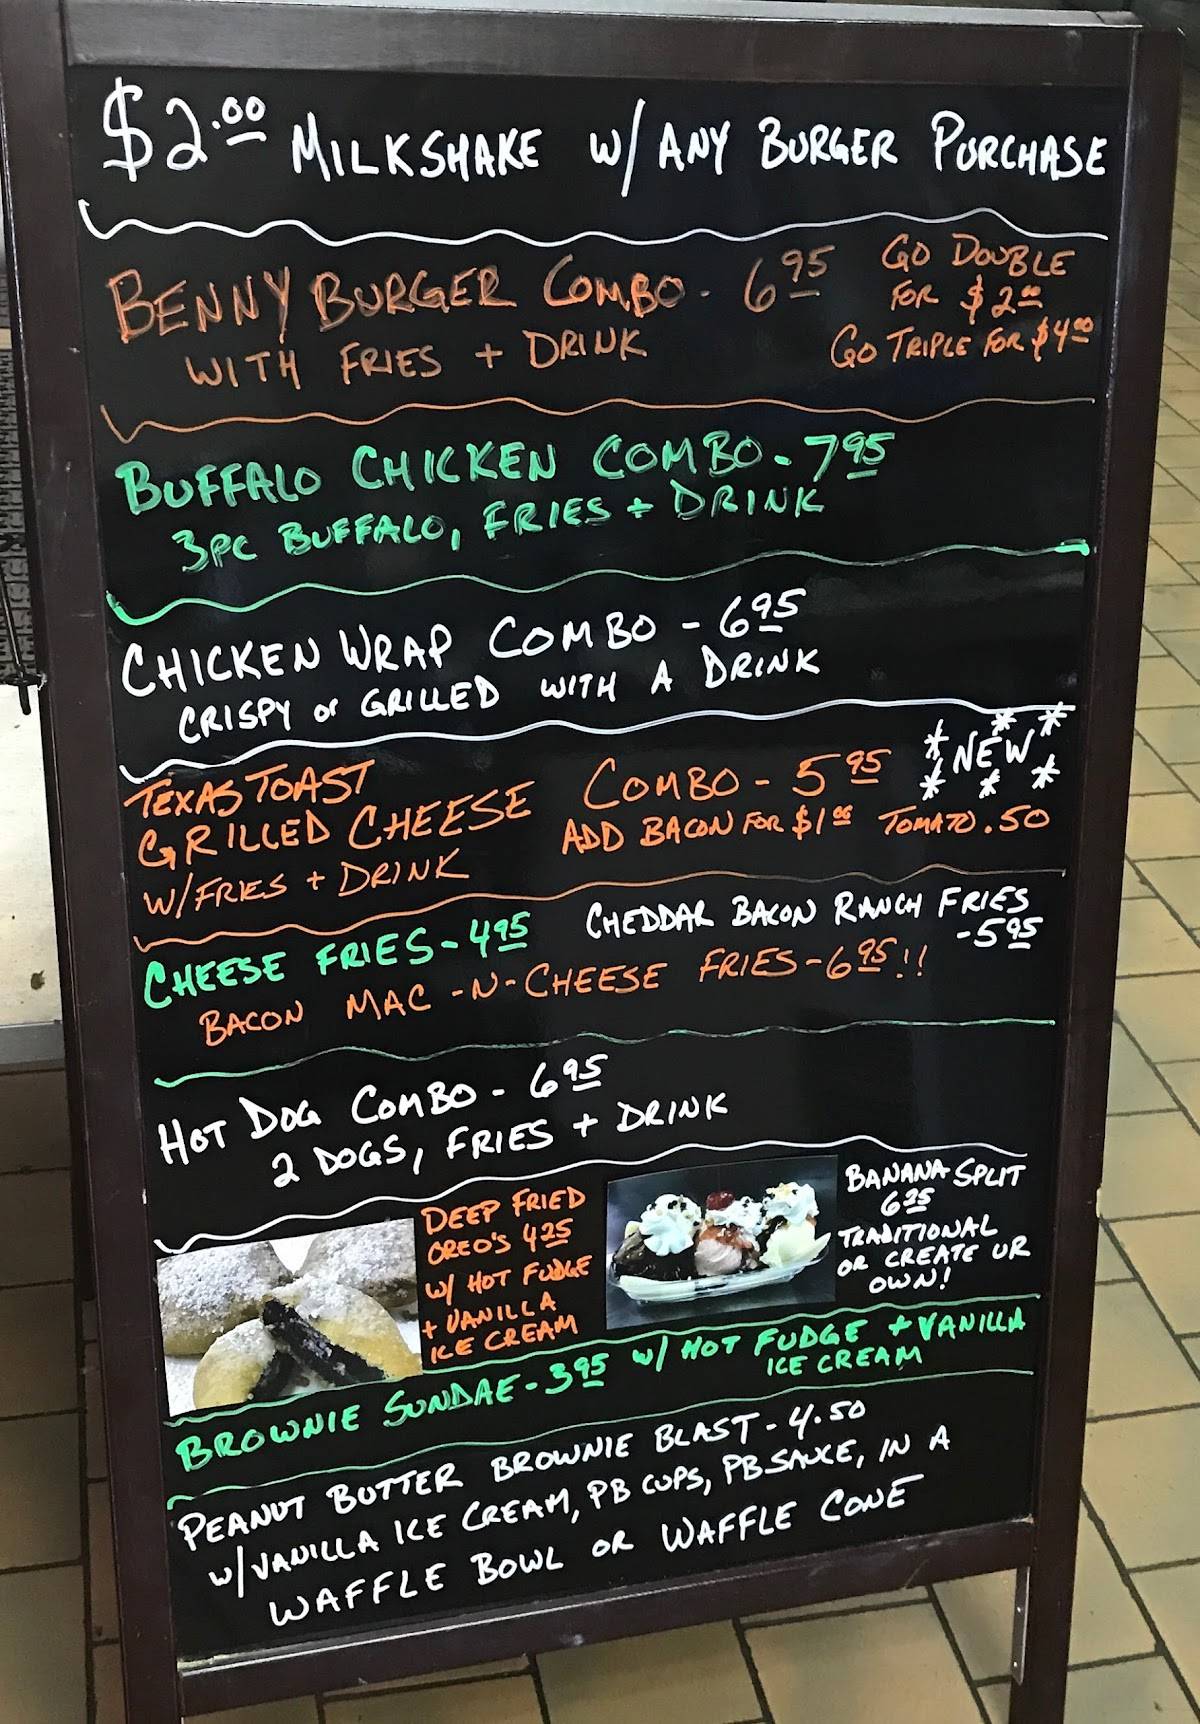 $2.00 MILKSHAKE W/ ANY BURGER PURCHASE
BENNY BURGER COMBO - 6.95
WITH FRIES + DRINK
GO DOUBLE
FOR $2.00
GO TRIPLE FOR $4.00
BUFFALO CHICKEN COMBO - 7.95
3PC BUFFALO, FRIES + DRINK
CHICKEN WRAP COMBO - 6.95
CRISPY or GRILLED WITH A DRINK
TEXAS TOAST
GRILLED CHEESE
W/FRIES + DRINK
COMBO - 5.95
ADD BACON FOR $1.00 TOMATO .50
*NEW*
CHEESE FRIES - 4.95
CHEDDAR BACON RANCH FRIES
- 5.95
BACON MAC-N-CHEESE FRIES - 6.95!!
HOT DOG COMBO - 6.95
2 DOGS, FRIES + DRINK
DEEP FRIED
OREO'S 4.25
W/ HOT FUDGE
+ VANILLA
ICE CREAM
BANANA SPLIT
6.25
TRADITIONAL
OR CREATE UR
OWN!
BROWNIE SUNDAE - 3.95 W/ HOT FUDGE + VANILLA
ICE CREAM
PEANUT BUTTER BROWNIE BLAST - 4.50
W/VANILLA ICE CREAM, PB CUPS, PB SAUCE, IN A
WAFFLE BOWL OR WAFFLE CONE